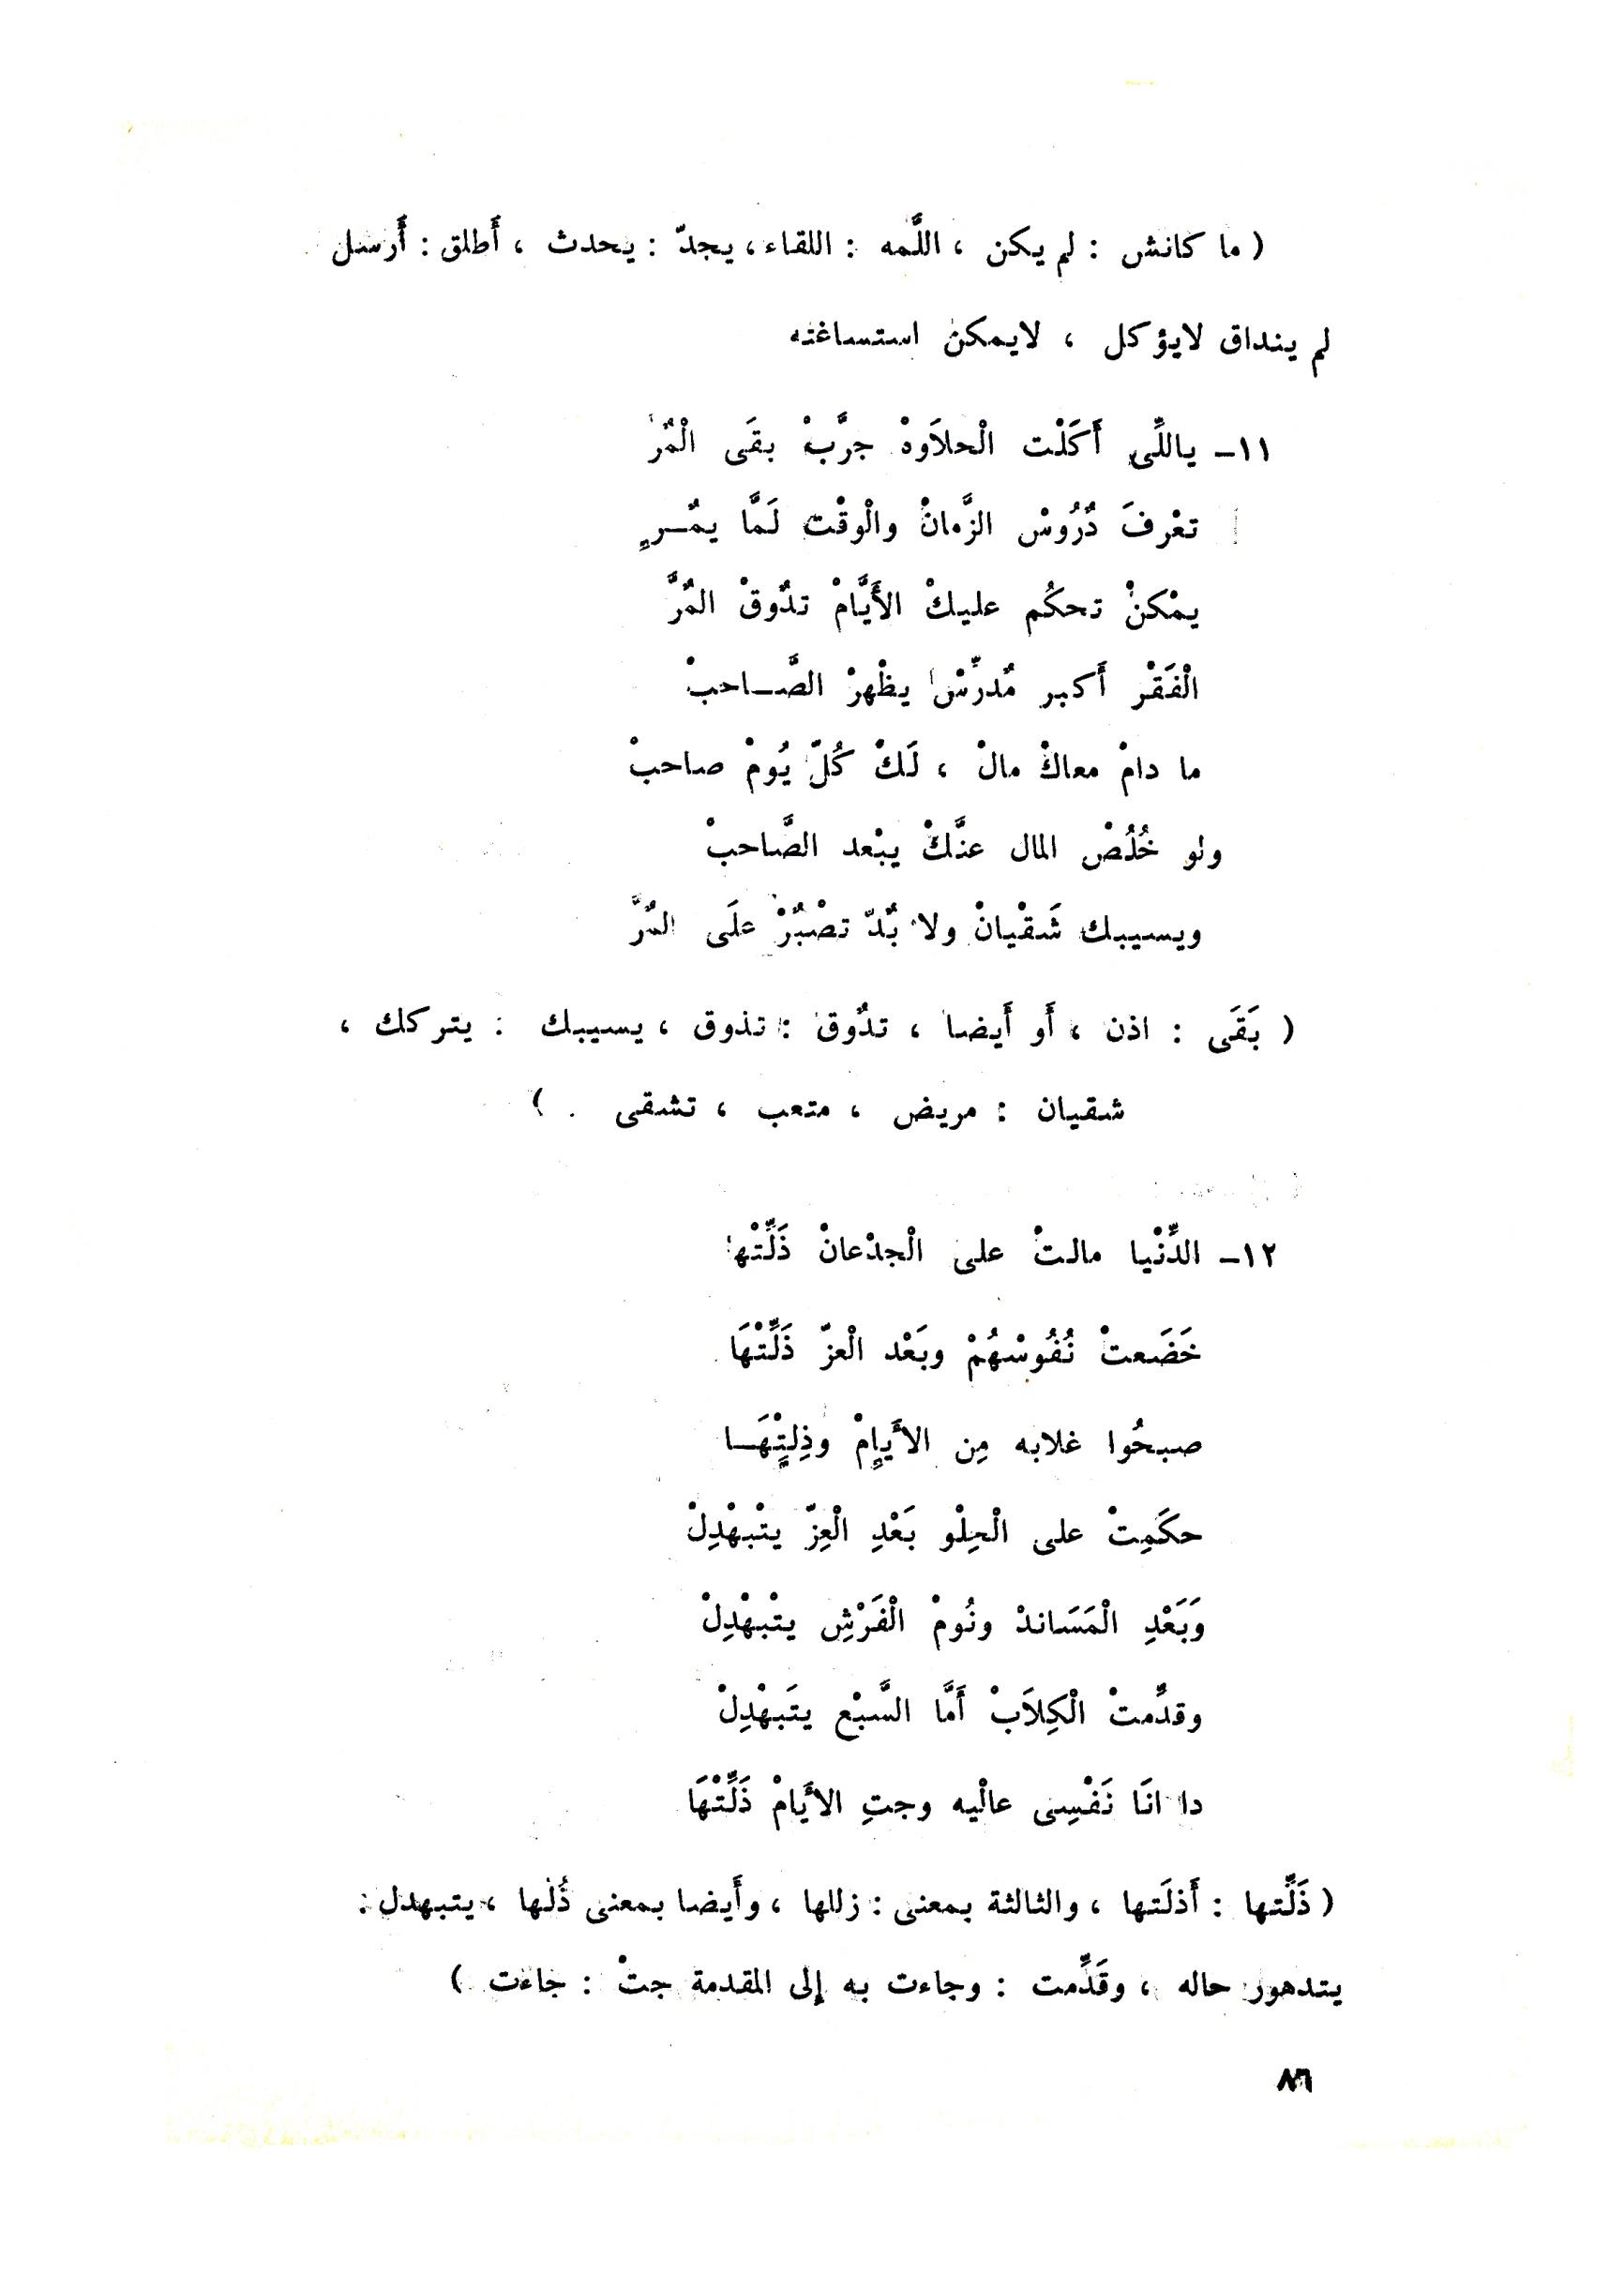 ( ما كانش : لم يكن ، اللَّمه : اللقاء ، يجدّ : يحدث ، أَطلق : أَرسل
لم ينداق لايؤكل ، لايمكن استساغته
١١ــ ياللِّى أَكَلْت الْحلاَوهْ جرَّبْ بقَى الْمُرّ
تعْرفَ دُرُوسْ الزَّمانْ والْوقْت لَمَّا يمُـــر
يمْكنْ تحكُم عليكْ الأَيَّامْ تدُوقْ المُرَّ
الْفَقْر أَكبر مُدرِّسْ يظْهرْ الصَّـــاحبْ
ما دامْ معاكْ مالْ ، لَكْ كُلّ يُومْ صاحبْ
ولو خُلُصْ المال عنَّكْ يبْعد الصَّاحبْ
ويسيبك شَقْيانْ ولا بُدّ تصْبُرْ علَى المُرَّ
( بَقَى : اذن ، أَو أَيضا ، تدُوق : تذوق ، يسيبك : يتركك ،
شقيان : مريض ، متعب ، تشقى . )
١٢ــ الدِّنْيا مالتْ على الْجدْعانْ ذَلِّتْها
خَضَعتْ نُفُوسْهُمْ وبَعْد الْعزّ ذَلِّتْهَا
صبحُوا غلابه مِن الأَيامْ وذِلتِهَـــا
حكَمِتْ على الْحِلْو بَعْدِ الْعِزّ يتْبهْدِلْ
وَبَعْدِ الْمَسَاندْ ونُومْ الْفَرْشِ يتْبهْدِلْ
وقدِّمتْ الْكِلاَبْ أَمَّا السَّبْع يتَبهْدِلْ
دا انَا نَفْسِى عالْيه وجتِ الأَيامْ ذَلِّتْهَا
( ذَلِّتها : أَذلَتها ، والثالثة بمعنى : زللها ، وأَيضا بمعنى ذُلها ، يتبهدل :
يتدهور حاله ، وقَدِّمت : وجاءت به إلى المقدمة جتْ : جاءت )
٨٦